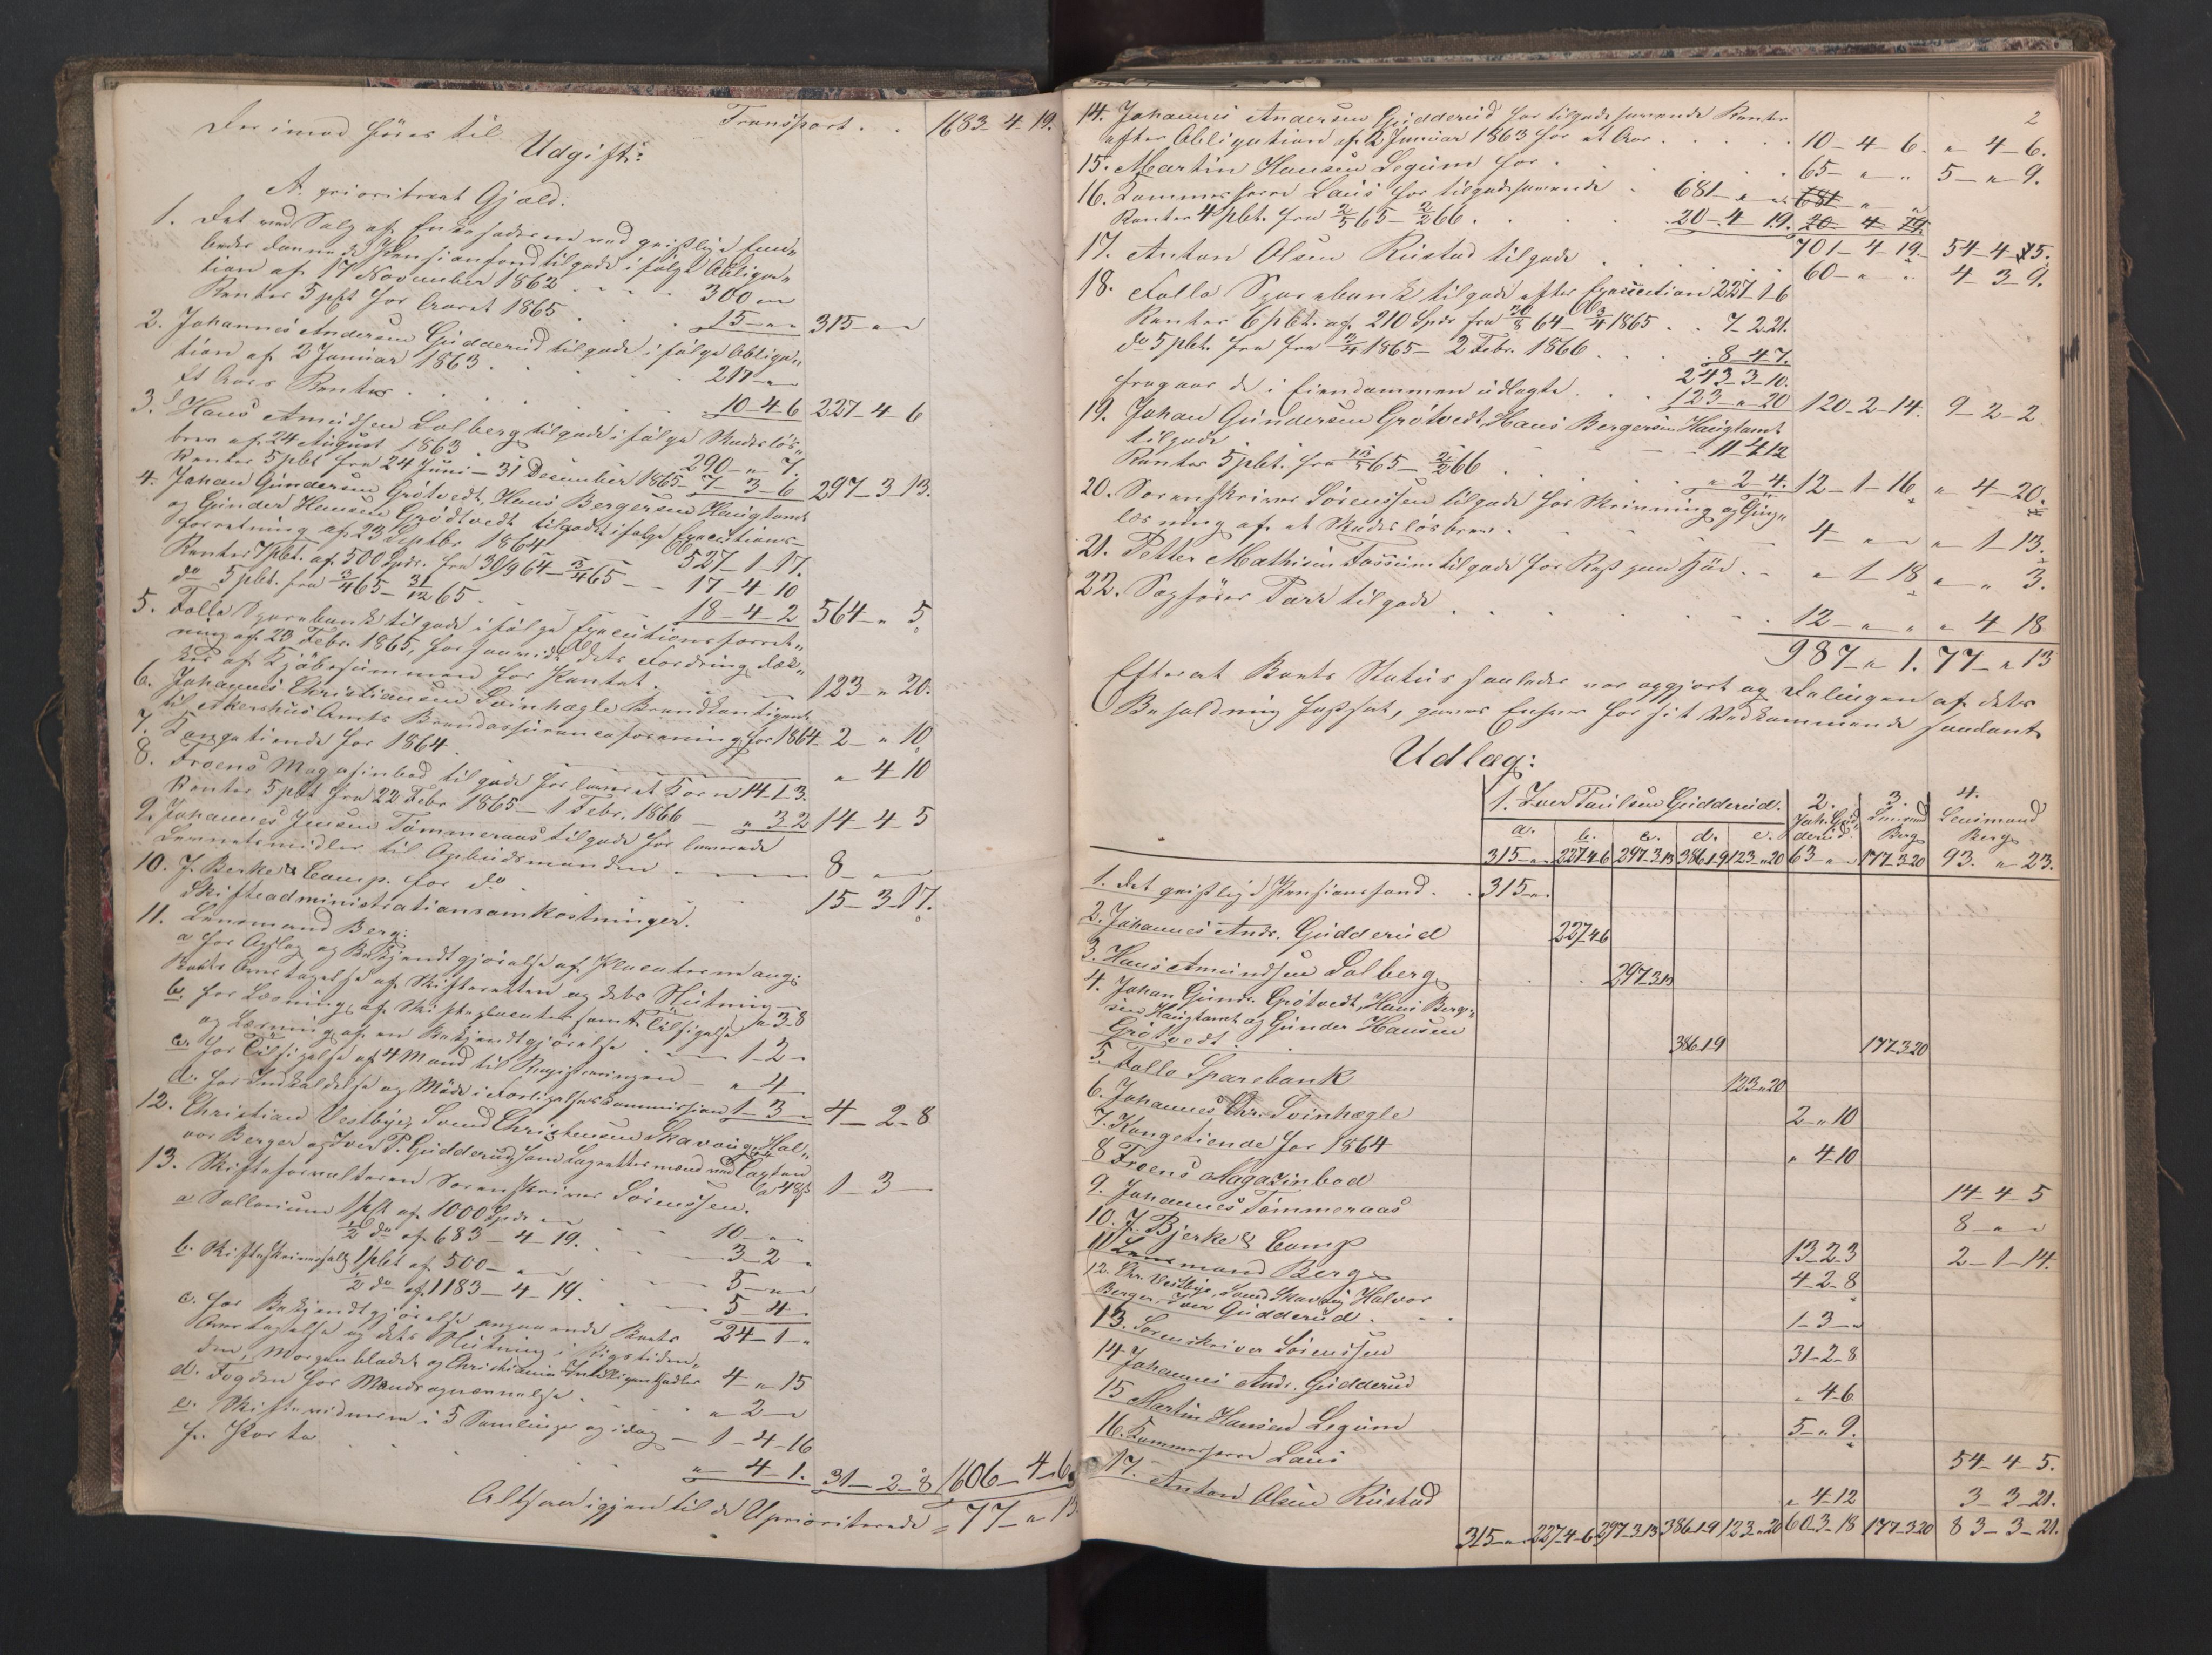 Transport . . 1683-4-19.
Derimod føres til
Udgift:
A. prioriteret Gjæld.
1. Det ved Salg af Enkesæderne ved geistlige Embe-
beder dannede Pensionsfond tilgode i følge Obliga-
tion af 17 November 1862 . . . 300 " "
Renter 5 pCt for Aaret 1865 . . . 15 - " " 315 - " "
2. Johannes Andersen Gudderud tilgode i følge Obliga-
tion af 2 Januar 1863 . . . 217 - " -
Et Aars Renter . . . 10-4-6 227-4-6
3. Hans Amundsen Dalberg tilgode i følge Skadesløs-
brev af 24 August 1863 290 - " 7.
Renter 5 pCt fra 24 Juni - 31 December 1865 - 7-3-6 297-3-13.
4. Johan Gundersen Grøtvedt, Hans Bergersen Haugtomt
og Gunder Hansen Grøtvedt tilgode i følge Executions-
forretning af 23 Septbr. 1864 527-1-17.
Renter 7 pCt. af 500 Spdr. fra 30/9 64 - 3/4 65 - - 17-4-10
do 5 pCt. fra 3/4 65 - 31/12 65 - - 18-4-2 564 - " 5
5. Follo Sparebank tilgode i følge Executionsforret-
ning af 23 Febr. 1865, forsaavidt dets Fordring dæk-
kes af Kjøbesummen for Pantet . . . 123 " 20.
6. Johannes Christiansen Svinhøgle Brandkontigent
til Akershus Amts Brandassuranceforening for 1864 - 2 - " 10
7. Kongetiende for 1864 . . . " 4 10
8. Froens Magasinbod tilgode for laanet Korn 14-1-3.
Renter 5 pCt fra 22 Febr. 1865 - 1 Febr. 1866 - " 3 2 14-4-5
9. Johannes Jensen Tømmeraas tilgode for leverede
Levnetsmidler til Opbudsmanden - - - 8 - " -
10. J. Bjerke & Comp. for do . . . 15-3-17.
Skifteadministrationsomkostninger.
11. Lensmand Berg:
a for Opslag og Bekjendtgjørelse af Placaterne ang:
Boets Overtagelse af Skifteretten og dets Slutning - " 3-8
b. for Læsning af Skifteplacater samt Tilsigelse
og Læsning af en Bekjendtgjørelse . - - 1-2 -
c. for Tilsigelse af 4 Mand til Registreringen - " 4 -
d. for Indkaldelse og Møde i Forligelseskommission 1-3 - 4-2-8
12. Christian Vestbye, Svend Christensen Skavoug, Hal-
vor Berger og Iver P. Gudderud som Lagrettesmænd ved Taxten
à 48 ß 1-3-
13. Skifteforvalteren Sorenskriver Sørenssen.
a Sallarium 1 pCt af 1000 Spdr " . . 10 - " -
1/2 do af 683-4-19. . . . 3-2 -
b. Skifteskriversalg 1 pCt af 500 - " . . . 5 - " -
1/2 do af 1183-4-19. . . . 5-4 -
24-1 - "
c. for Bekjendtgjørelse angaaende Boets
Overtagelse og dets Slutning i Rigstiden-
den, Morgenbladet og Christiania Intelligentssedler 4 - " 15
d. Fogden for Mands opnævnelse . . . " 2 - "
e. Skiftevidnerne i 5 Samlinger og idag - 1-4-16
f. Porto . . . " 4 1. 31-2-8 1606-4-6
Altsaa igjen til de Uprioriterede = 77 - " 13
2
14. Johannes Andersen Gudderud for tilgodehavende Renter
efter Obligation af 2 Januar 1863 for et Aar . . . 10-4-6. " 4-6.
15. Martin Hansen Legum for . . . 65 - " " 5 - " 9.
16. Kammerherre Laus for tilgodehavende . 681 - " " 681 - " "
Renter 4 pCt. fra 2/5 65 - 2/2 66 . . . 20-4-19. 20-4-19.
701-4-19. 54-4-5.
17. Anton Olsen Rustad tilgode . . . 60 - " " 4 3 9.
18. Follo Sparebank tilgode efter Execution 227 1 6
Renter 6 pCt. af 210 Spdr fra 20/8 64 - 3/4 1865 . . 7 2 21.
do 5 pCt. fra fra 3/4 1865 - 2 Febr. 1866 . . . 8 4 7.
243-3-10.
fragaar de i Eiendommen udlagte . . 123 " 20 120-2-14. 9-2-2
19. Johan Gundersen Grøtvedt, Hans Bergersen Haugtomt
tilgode . . . 11 4 12
Renter 5 pCt. fra 13/5 65 - 2/2 66 . . . " 2-4. 12-1-16 " 4-20.
20. Sorenskriver Sørenssen tilgode for Skrivning og Ting-
læsning af et Skadesløsbrev . . . 4 - " - " 1-13.
21. Petter Mathisen Fossum tilgode for Rest paa Hjør . - " 1-18 " - " 3.
22. Sagfører Parr tilgode . . . 12 - " " " 4 18
987 - " 1. 77 - " 13
Efterat Boets Status saaledes var opgjort og Delingen af dets
Beholdning fastsat, gaves Enhver for sit Vedkommende saadant
Udlæg:
1. Iver Paulsen Gudderud. 2. Joh. Gudderud 3. Lensmand Berg 4. Lensmand Berg
a. b. c. d. e.
315 - " " 227 4 6 297-3-13 386 1 9 123 " 20 63 - " " 177-3-20 93. " 23.
1. Det geistlige Pensionsfond . . 315 - " "
2. Johannes Andr. Gudderud 227 4 6
3. Hans Amundsen Dalberg . . 297-3-13
4. Johan Gundr. Grøtvedt, Hans Berger-
sen Haugtomt og Gunder Hansen
Grøtvedt . . 386 1 9 177-3-20
5. Follo Sparebank 123 " 20
6. Johannes Chr. Svinhøgle 2 - " 10
7. Kongetiende for 1864 " 4 10
8 Froens Magazinbod 14-4-5
9. Johannes Tømmeraas 8 - " -
10. J. Bjerke & Comp 13-2-3 2-1-14.
11 Lensmand Berg 4-2-8
12. Chr. Vestbye, Svend Skavoug Halvor
Berger, Iver Gudderud . - - 1-3 - "
13. Sorenskriver Sørenssen 31-2-8
14. Johannes Andr. Gudderud " 4 6
15 Martin Hansen Legum 5 - " 9.
16. Kammerherre Laus 54-4-5.
17. Anton Olsen Rustad " 4-12 3-3-21.
315 - " " 227-4-6 297-3-13 386-1-9 123 " 20 60-3-18 177-3-20 83-3-21.